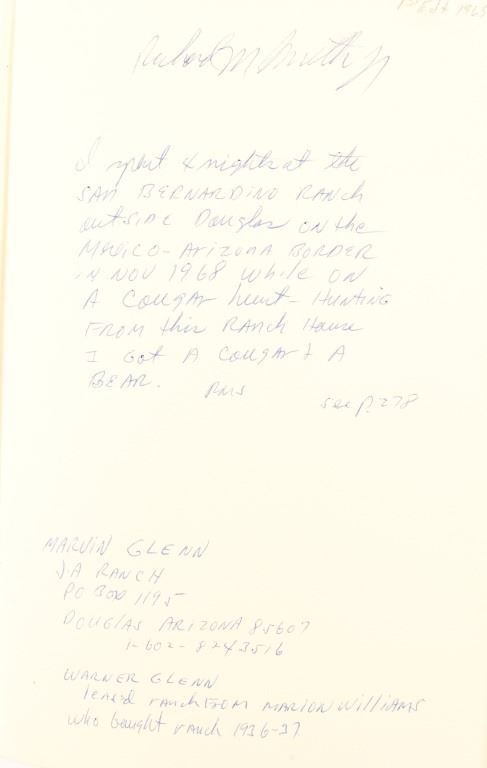 1st Edt 1965
Richard M Smith Jr
I spent 4 nights at the
SAN BERNARDINO RANCH
outSIDE Douglas ON the
MEXICO-ARIZONA BORDER
IN NOV 1968 while ON
A COUGAR hunt-HUNTING
FROM this RANCH House
I GOT A COUGAR & A
BEAR.
RMS
see p. 278
MARVIN GLENN
J-A RANCH
PO BOX 1195
DOUGLAS ARIZONA 85607
1-602-8243516
WARNER GLENN
leased ranch FROM MARION WILLIAMS
who bought ranch 1936-37